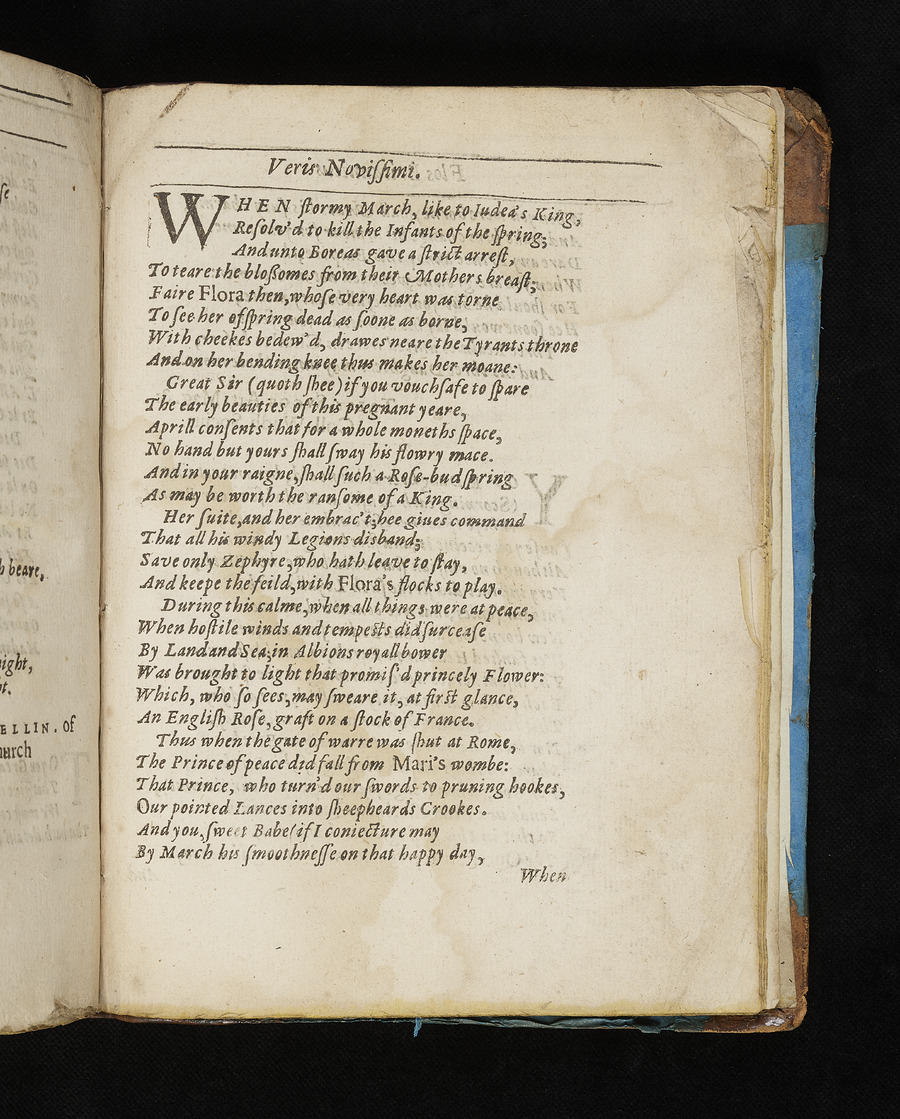 Veris Noviſſimi.
WHEN ſtormy March, like to Iudea's King,
Reſolv'd to kill the Infants of the ſpring;
And unto Boreas gave a ſtrict arreſt,
To teare the bloßomes from their Mothers breaſt;
Faire Flora then, whoſe very heart was torne
To ſee her ofſpring dead as ſoone as borne,
With cheekes bedew'd, drawes neare the Tyrants throne
And on her bending knee thus makes her moane:
Great Sir (quoth ſhee) if you vouchſafe to ſpare
The early beauties of this pregnant yeare,
Aprill conſents that for a whole moneths ſpace,
No hand but yours ſhall ſway his flowry mace.
And in your raigne, ſhall ſuch a Roſe-bud ſpring
As may be worth the ranſome of a King.
Her ſuite, and her embrac't; hee giues command
That all his windy Legions disband;
Save only Zephyre, who hath leave to ſtay,
And keepe the feild, with Flora's flocks to play.
During this calme, when all things were at peace,
When hoſtile winds and tempeſts did ſurceaſe
By Land and Sea; in Albions royall bower
Was brought to light that promiſ'd princely Flower:
Which, who ſo ſees, may ſweare it, at firſt glance,
An Engliſh Roſe, graft on a ſtock of France.
Thus when the gate of warre was ſhut at Rome,
The Prince of peace did fall from Mari's wombe:
That Prince, who turn'd our ſwords to pruning hookes,
Our pointed Lances into ſheepheards Crookes.
And you, ſweet Babe (if I coniecture may
By March his ſmoothneſſe on that happy day,
When
h beare,
ight,
ELLIN. of
hurch